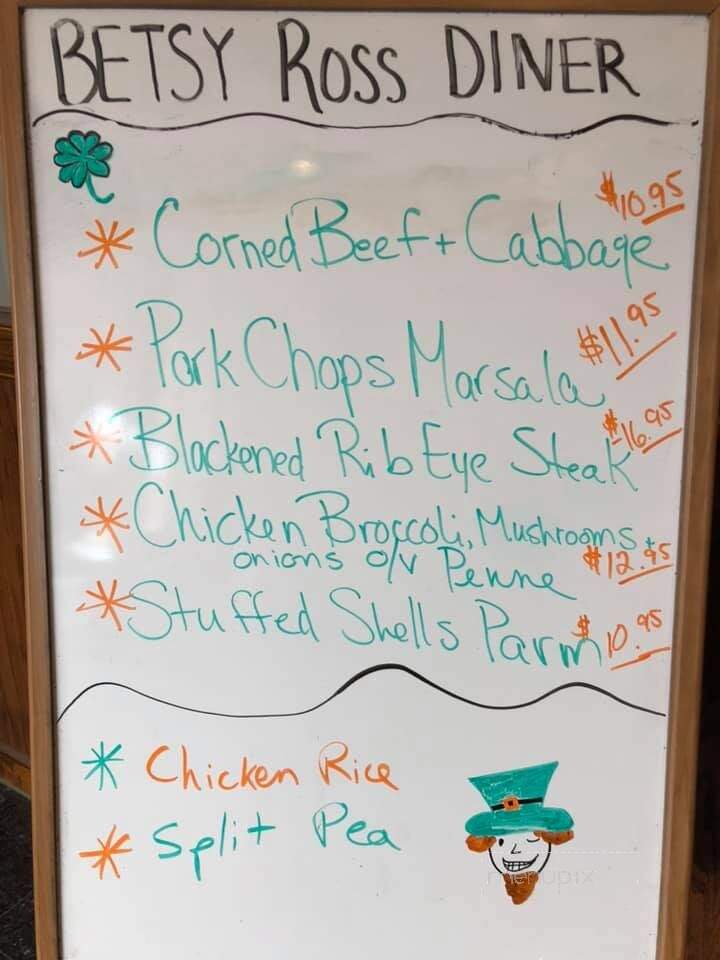 BETSY ROSS DINER
* Corned Beef + Cabbage $10.95
* Pork Chops Marsala $11.95
* Blackened Rib Eye Steak $16.95
* Chicken Broccoli, Mushrooms +
onions o/v Penne $12.95
* Stuffed Shells Parm $10.95
* Chicken Rice
* Split Pea
menupix